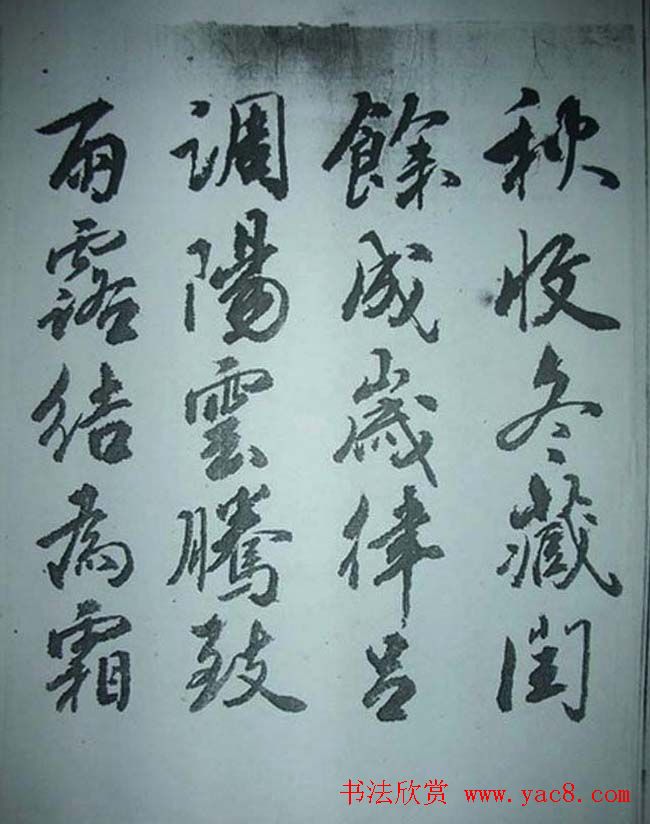 秋收冬藏閏
餘成歲律吕
調陽雲騰致
雨露結為霜
书法欣赏 www.yac8.com